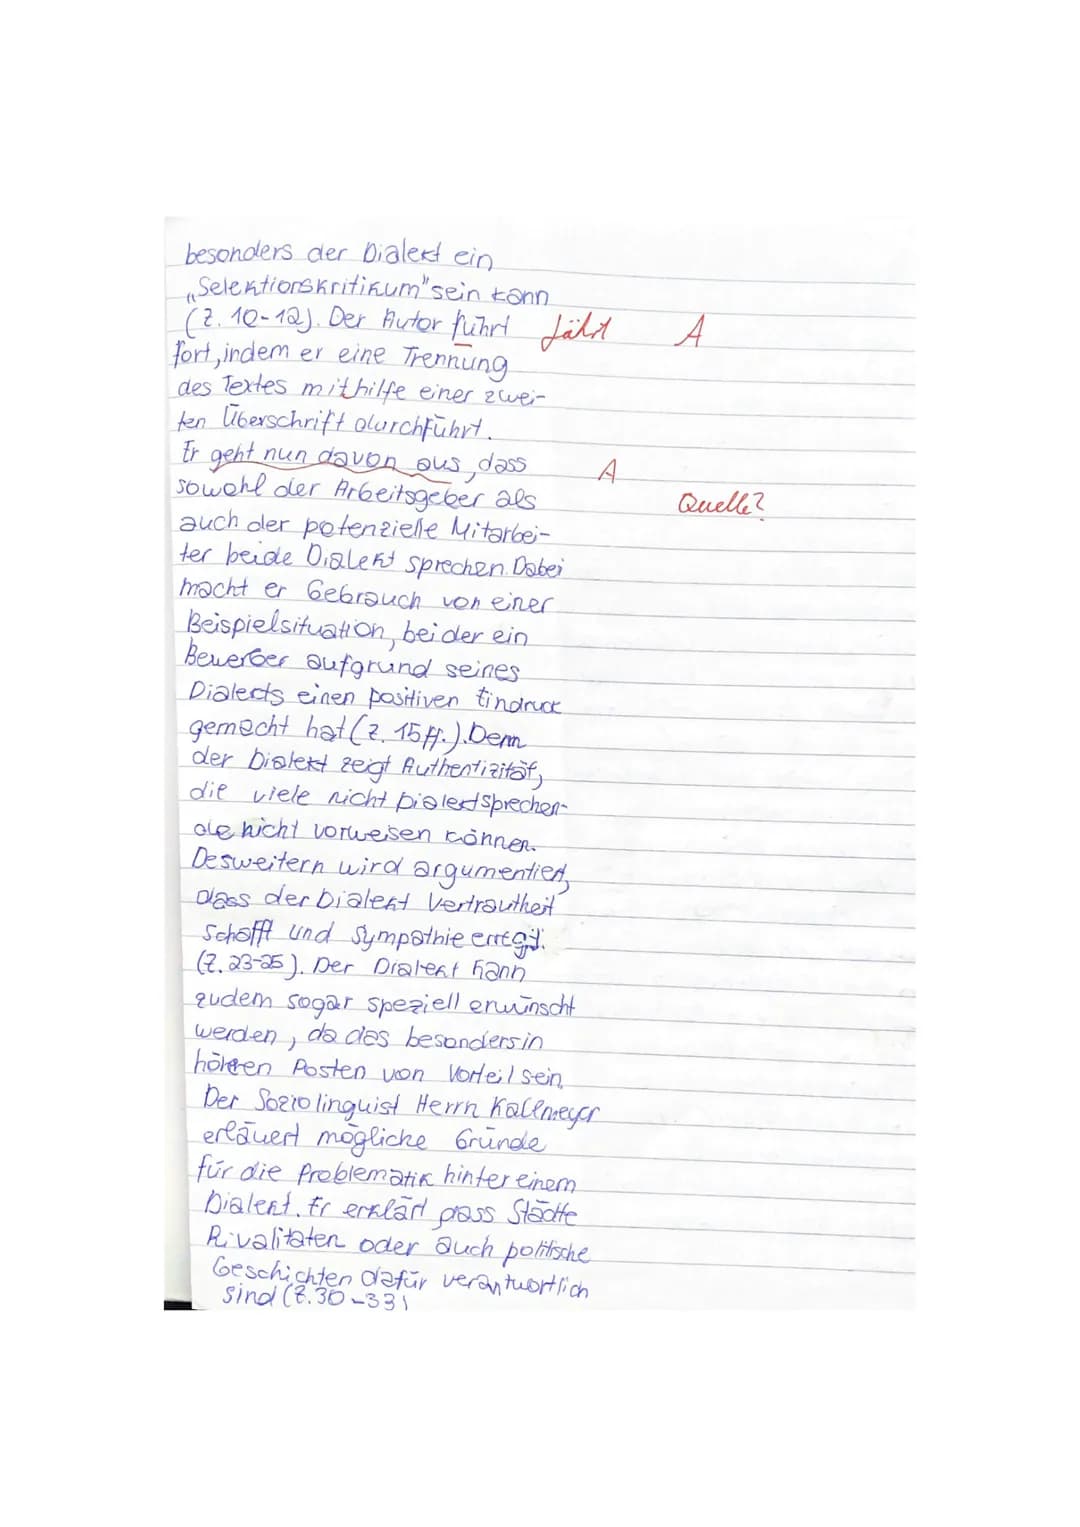 besonders der Dialekt ein
„Selektionskritikum" sein kann
(Z. 10-12). Der Autor führt fährt A
fort, indem er eine Trennung
des Textes mithilfe einer zwei-
ten Überschrift durchführt.
Er geht nun davon aus, dass A
sowohl der Arbeitsgeber als Quelle?
auch der potenzielle Mitarbei-
ter beide Dialekt sprechen. Dabei
macht er Gebrauch von einer
Beispielsituation, bei der ein
Bewerber aufgrund seines
Dialekts einen positiven Eindruck
gemacht hat (Z. 15ff.). Denn
der Dialekt zeigt Authentizität,
die viele nicht Dialektsprechen-
de nicht vorweisen können.
Desweitern wird argumentiert,
dass der Dialekt Vertrautheit
schafft und Sympathie erregt.
(Z. 23-25). Der Dialekt kann
zudem sogar speziell erwünscht
werden, da das besonders in
höheren Posten von Vorteil sein.
Der Soziolinguist Herrn Kallmeyer
erläuert mögliche Gründe
für die Problematik hinter einem
Dialekt. Er erklärt dass Städte
Rivalitäten oder auch politische
Geschichten dafür verantwortlich
sind (Z. 30-33)